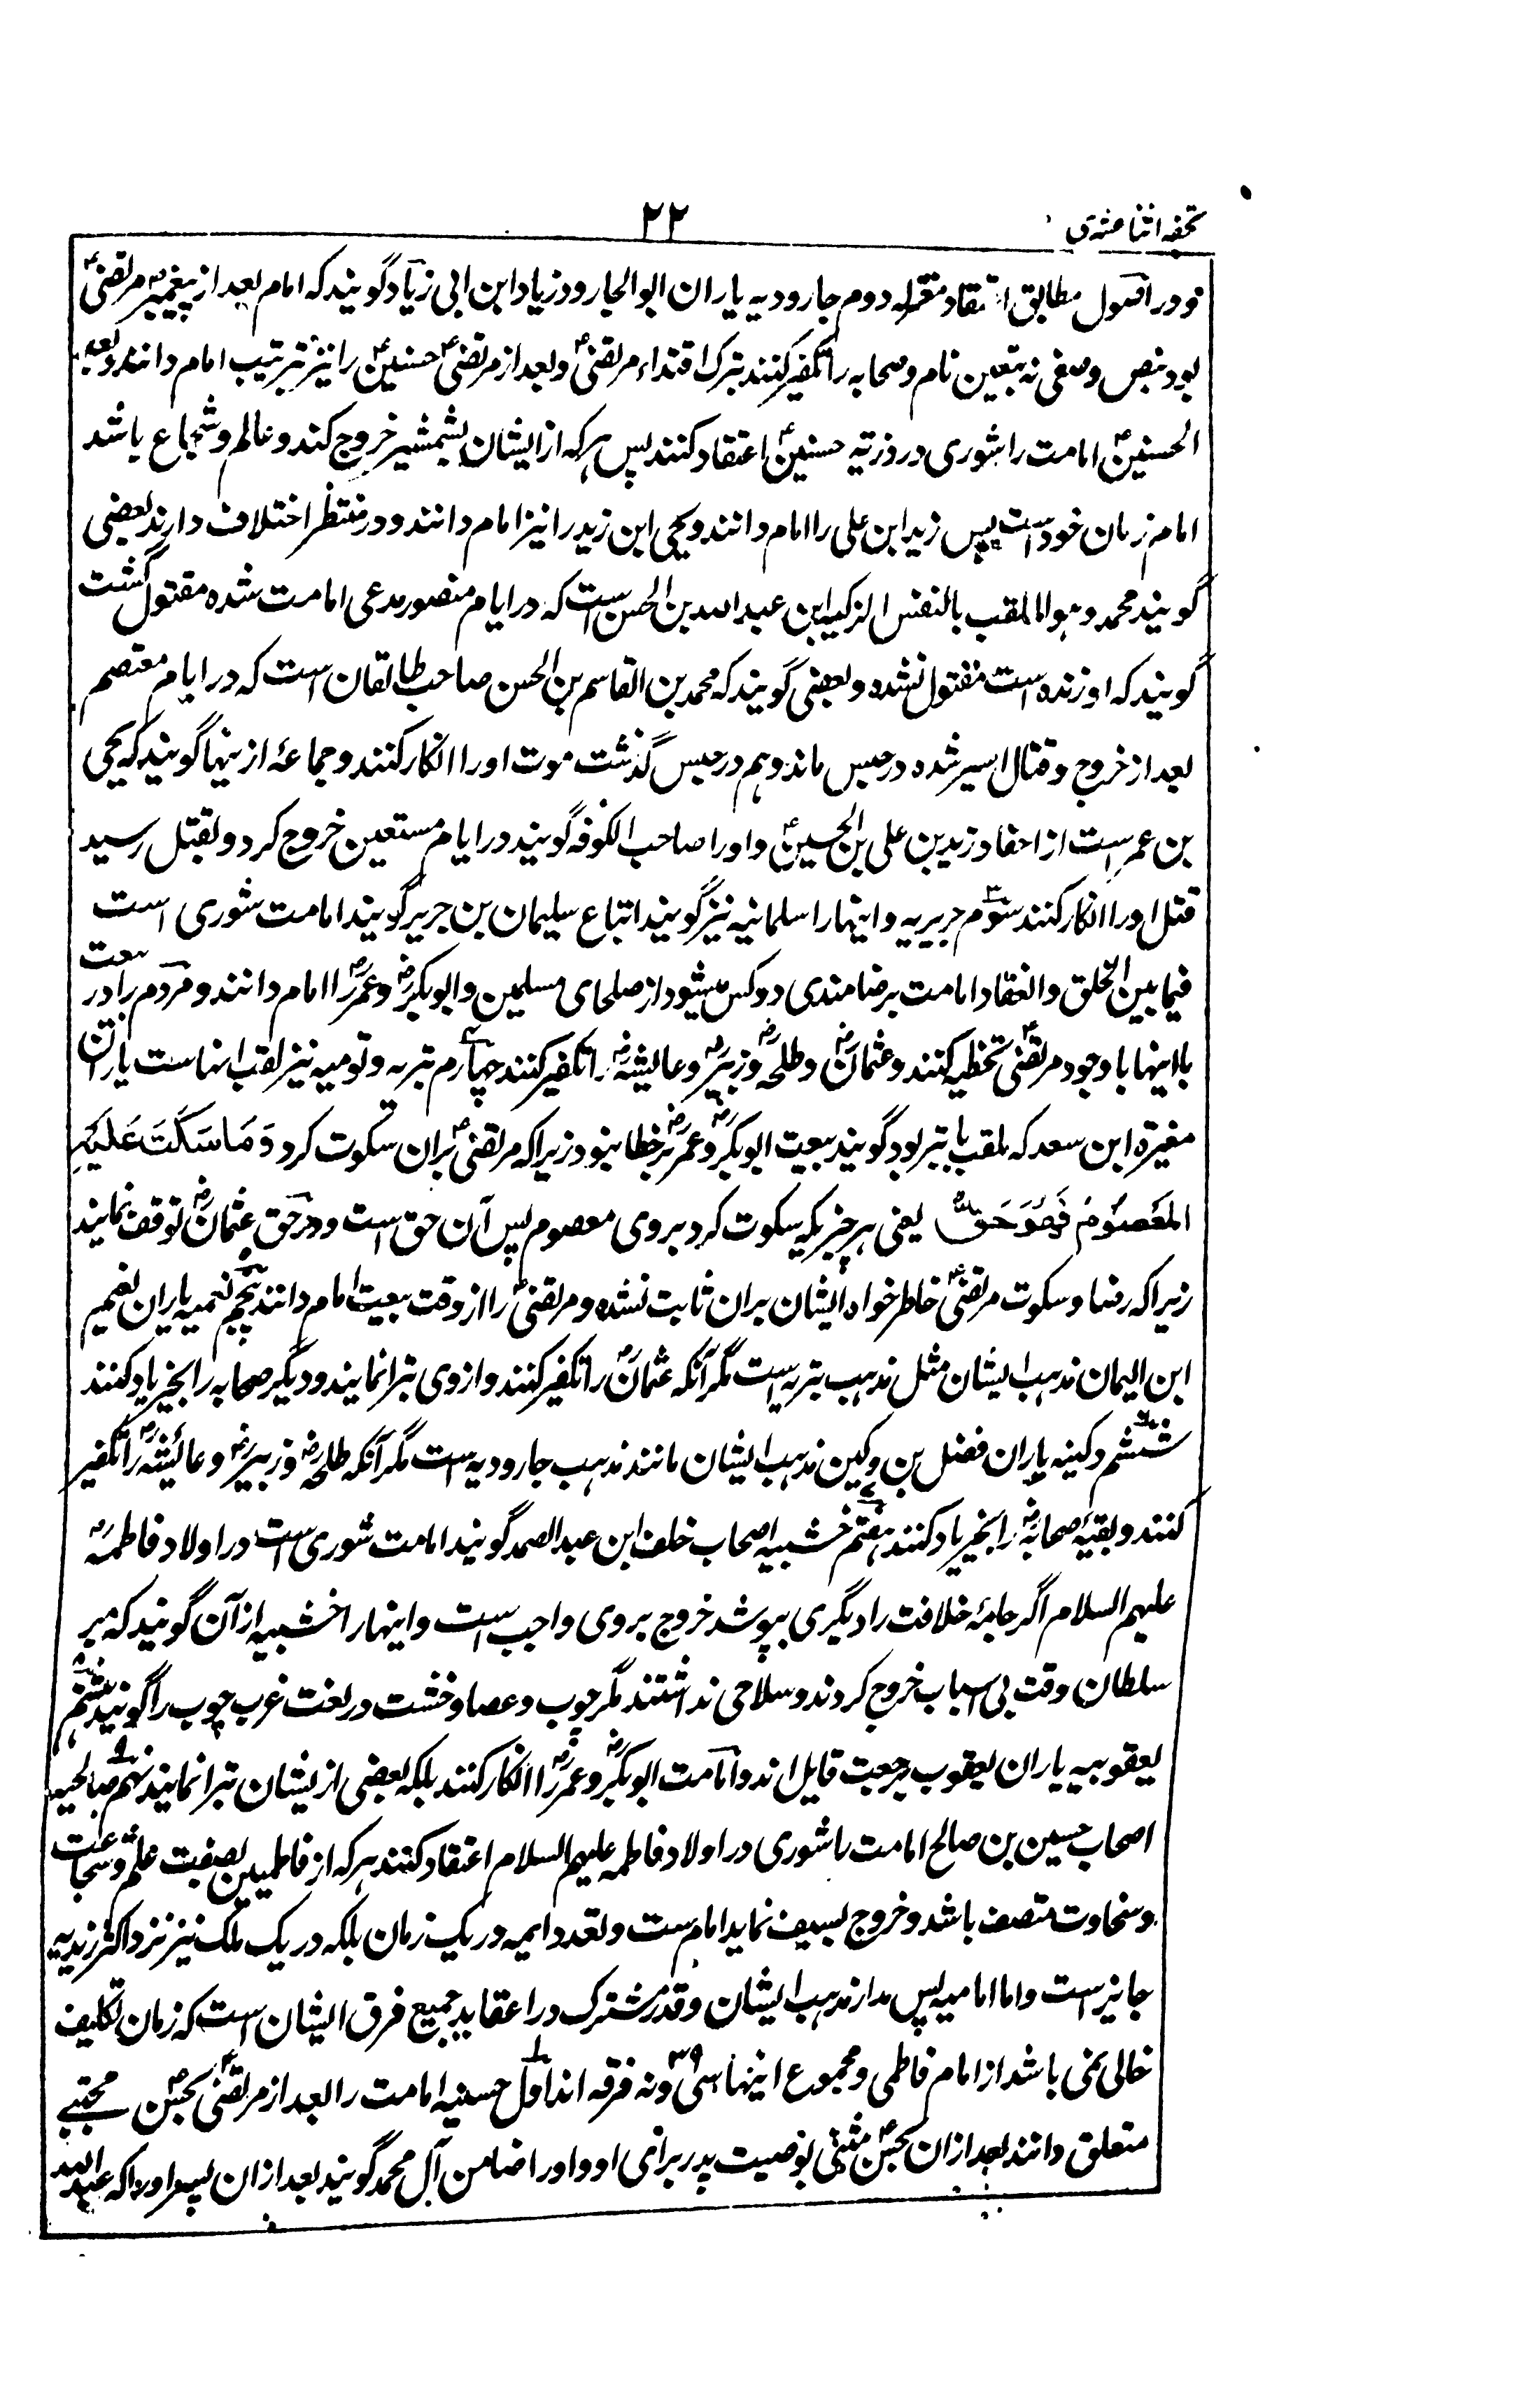 تحفه اثنا عشری
۲۲
و در اصول مطابق اعتقاد معتزله دوم جارودیه یاران ابو الجارود زیاد ابن ابی زیاد گویند که امام بعد از پیغمبر مرتضیؑ
بود بنص وصفی نه بتعین نام و صحابه را تکفیر کنند بترک اقتداء مرتضیؑ و بعد از مرتضیؑ حسنینؑ را نیز بترتیب امام دانند و بعد
الحسنینؑ امامت را شوری در ذریّه حسنینؑ اعتقاد کنند پس هرکه از ایشان بشمشیر خروج کند و عالم و شجاع باشد
امام زمان خود است پس زید ابن علی را امام دانند و یحیی ابن زید را نیز امام دانند و در منتظر اختلاف دارند بعضی
گویند محمد و هوالملقب بالنفس الزکیه ابن عبد الله بن الحسن است که در ایام منصور مدعی امامت شده مقتول گشت
گویند که او زنده است مقتول نشده و بعضی گویند که محمد بن القاسم بن الحسن صاحب طالقان است که در ایام معتصم
بعد از خروج و قتال اسیر شده در حبس ماند و هم در حبس گذشت موت او را انکار کنند و جماعهٔ از ینها گویند که یحیی
بن عمر است از احفاد زید بن علی بن الحسینؑ و او را صاحب الکوفه گویند در ایام مستعین خروج کرد و بقتل رسید
قتل او را انکار کنند سوم جریریه و اینها را سلمانیه نیز گویند اتباع سلیمان بن جریر گویند امامت شوری است
فیما بین الخلق و انعقاد امامت برضامندی دو کس میشود از صلحای مسلمین و ابوبکرؓ و عمرؓ را امام دانند و مردم را در بیعت
با اینها با وجود مرتضیؑ تخطیه کنند و عثمانؓ و طلحهؓ و زبیرؓ و عایشهؓ را تکفیر کنند چهارم بتریه و تومیه نیز لقب انهاست یاران
مغیره ابن سعد که ملقب بابتر بود گویند بیعت ابوبکرؓ و عمرؓ بر خطا نبود زیرا که مرتضیؑ بران سکوت کرد وَمَا سَکَتَ عَلَیْهِ
المَعصُومُ فَهُوَ حَقٌّ یعنی هر چیزیکه سکوت کرد بروی معصوم پس آن حق است و در حق عثمانؓ توقف نمایند
زیرا که رضا و سکوت مرتضیؑ خاطر خواه ایشان بران ثابت نشده و مرتضیؑ را از وقت بیعت امام دانند پنجم نعیمیه یاران نعیم
ابن الیمان مذهب ایشان مثل مذهب بتریه است مگر آنکه عثمانؓ را تکفیر کنند و از وی تبرا نمایند و دیگر صحابه را بخیر یاد کنند
ششم دکینه یاران فضل بن دکین مذهب ایشان مانند مذهب جارودیه است مگر آنکه طلحهؓ و زبیرؓ و عائشهؓ را تکفیر
کنند و بقیه صحابهؓ را بخیر یاد کنند هفتم خشبیه اصحاب خلف ابن عبد الصمد گویند امامت شوری است در اولاد فاطمهؑ
علیهم السلام اگر جامهٔ خلافت را دیگری بپوشد خروج بروی واجب است و اینها را خشبیه از آن گویند که بر
سلطان وقت بی اسباب خروج کردند و سلاحی نداشتند مگر چوب و عصا و خشب در لغت عرب چوب را گویند هشتم
یعقوبیه یاران یعقوب برجعت قایل اند و امامت ابوبکرؓ و عمرؓ را انکار کنند بلکه بعضی از یشان تبرا نمایند نهم صالحیه
اصحاب حسین بن صالح امامت را شوری در اولاد فاطمه علیهم السلام اعتقاد کنند هرکه از فاطمیین بصفت علم و شجاعت
و سخاوت متصف باشد و خروج بسیف نماید امام ست و تعدد ایمه در یک زمان بلکه در یک ملک نیز نزد اکثر زیدیه
جایز است و اما امامیه پس مدار مذهب ایشان و قدر مشترک در اعقاید جمیع فرق ایشان است که زمان تکلیف
خالی نمی باشد از امام فاطمی و مجموع اینها سی و نه فرقه اند اول حسنیه امامت را بعد از مرتضیؑ بحسن مجتبے
متعلق دانند بعد ازان بحسن مثنی بوصیت پدر برای او و او را ضامن آل محمد گویند بعد ازان پسر او را که عبد الله